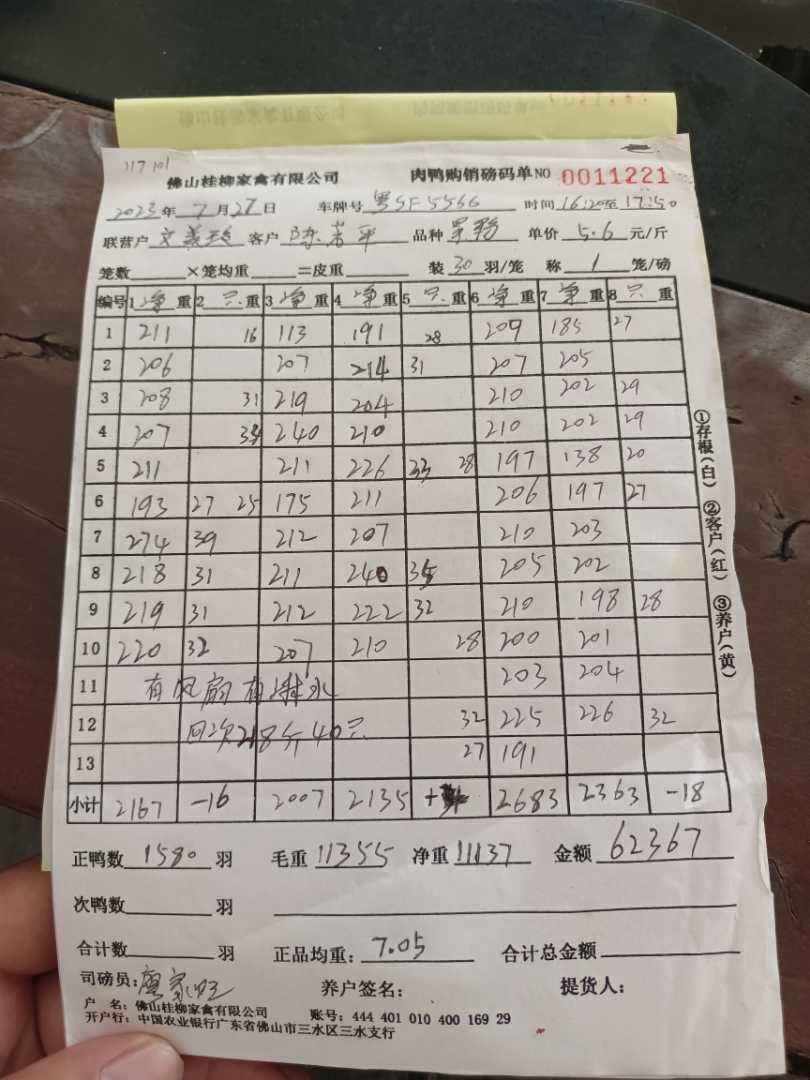 117 101
佛山桂柳家禽有限公司 肉鸭购销磅码单 NO 0011221
2023年 7月 27日 车牌号 粤SF5566 时间 16:20至 17:50
联营户 客户 陈若平 品种 单价 5.6 元/斤
笼数 ×笼均重 =皮重 装 30 羽/笼 称 1 笼/磅
编号 1 净 重 2 只 重 3 净 重 4 净 重 5 只 重 6 净 重 7 净 重 8 只 重
1 211 16 113 191 28 209 185 27
2 206 207 214 31 207 205
3 208 31 219 204 210 202 29
4 207 34 240 210 210 202 29
5 211 211 226 33 28 197 138 20
6 193 27 25 175 211 206 197 27
7 274 39 212 207 210 203
8 218 31 211 240 35 205 202
9 219 31 212 222 32 210 198 28
10 220 32 207 210 28 200 201
11 有风扇有淋水 203 204
12 回次218斤40只 32 225 226 32
13 27 191
小计 2167 -16 2007 2135 + 2683 2363 -18
正鸭数 1580 羽 毛重 11355 净重 11137 金额 62367
次鸭数 羽
合计数 羽 正品均重: 7.05 合计总金额
司磅员: 廖家旺 养户签名: 提货人:
户 名: 佛山桂柳家禽有限公司 账号: 444 401 010 400 169 29
开户行: 中国农业银行广东省佛山市三水区三水支行
①存根(白) ②客户(红) ③养户(黄)